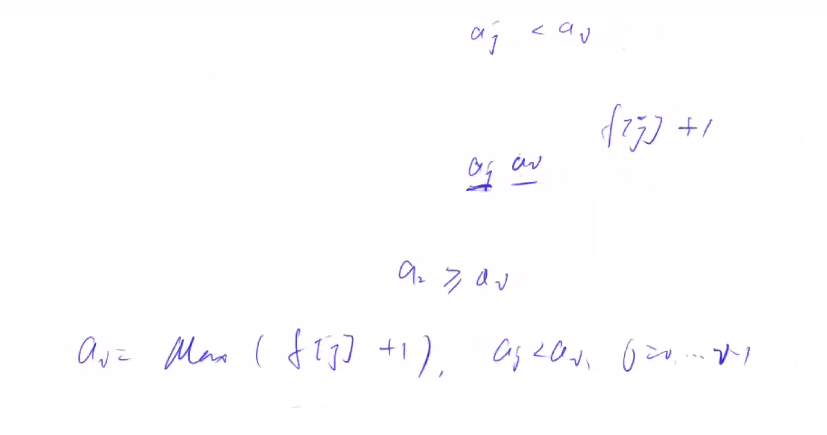 aj < ai
f[j] + 1
aj ai
a₂ ≥ ai
ai = Max ( f[j] + 1 ), aj < ai, j = 0, ... i-1